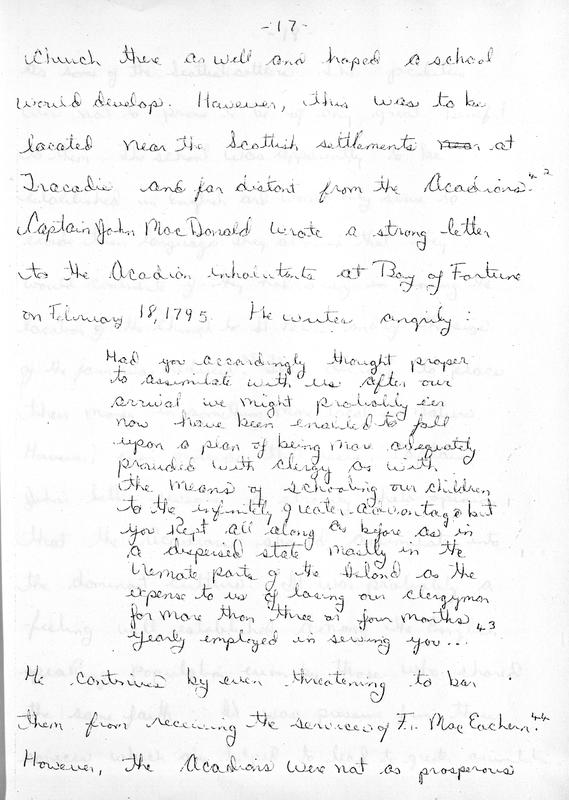 -17-
Church there as well and hoped a school
would develop. However, this was to be
located near the Scottish settlements near at
Tracadie and far distant from the Acadians.42
Captain John MacDonald wrote a strong letter
to the Acadian inhabitants at Bay of Fortune
on February 18, 1795. He writes angrily:
Had you accordingly thought proper
to assimilate with us after our
arrival we might probably e'er
now have been enabled to fall
upon a plan of being more adequately
provided with clergy as with
the means of schooling our children
to the infinitely greater advantage but
you kept all along as before as in
a dispersed state mostly in the
remote parts of the Island as the
expense to us of losing our clergyman
for more than three or four months
yearly employed in serving you...43
He continues by even threatening to bar
them from receiving the services of Fr. MacEachern.44
However, the Acadians were not as prosperous